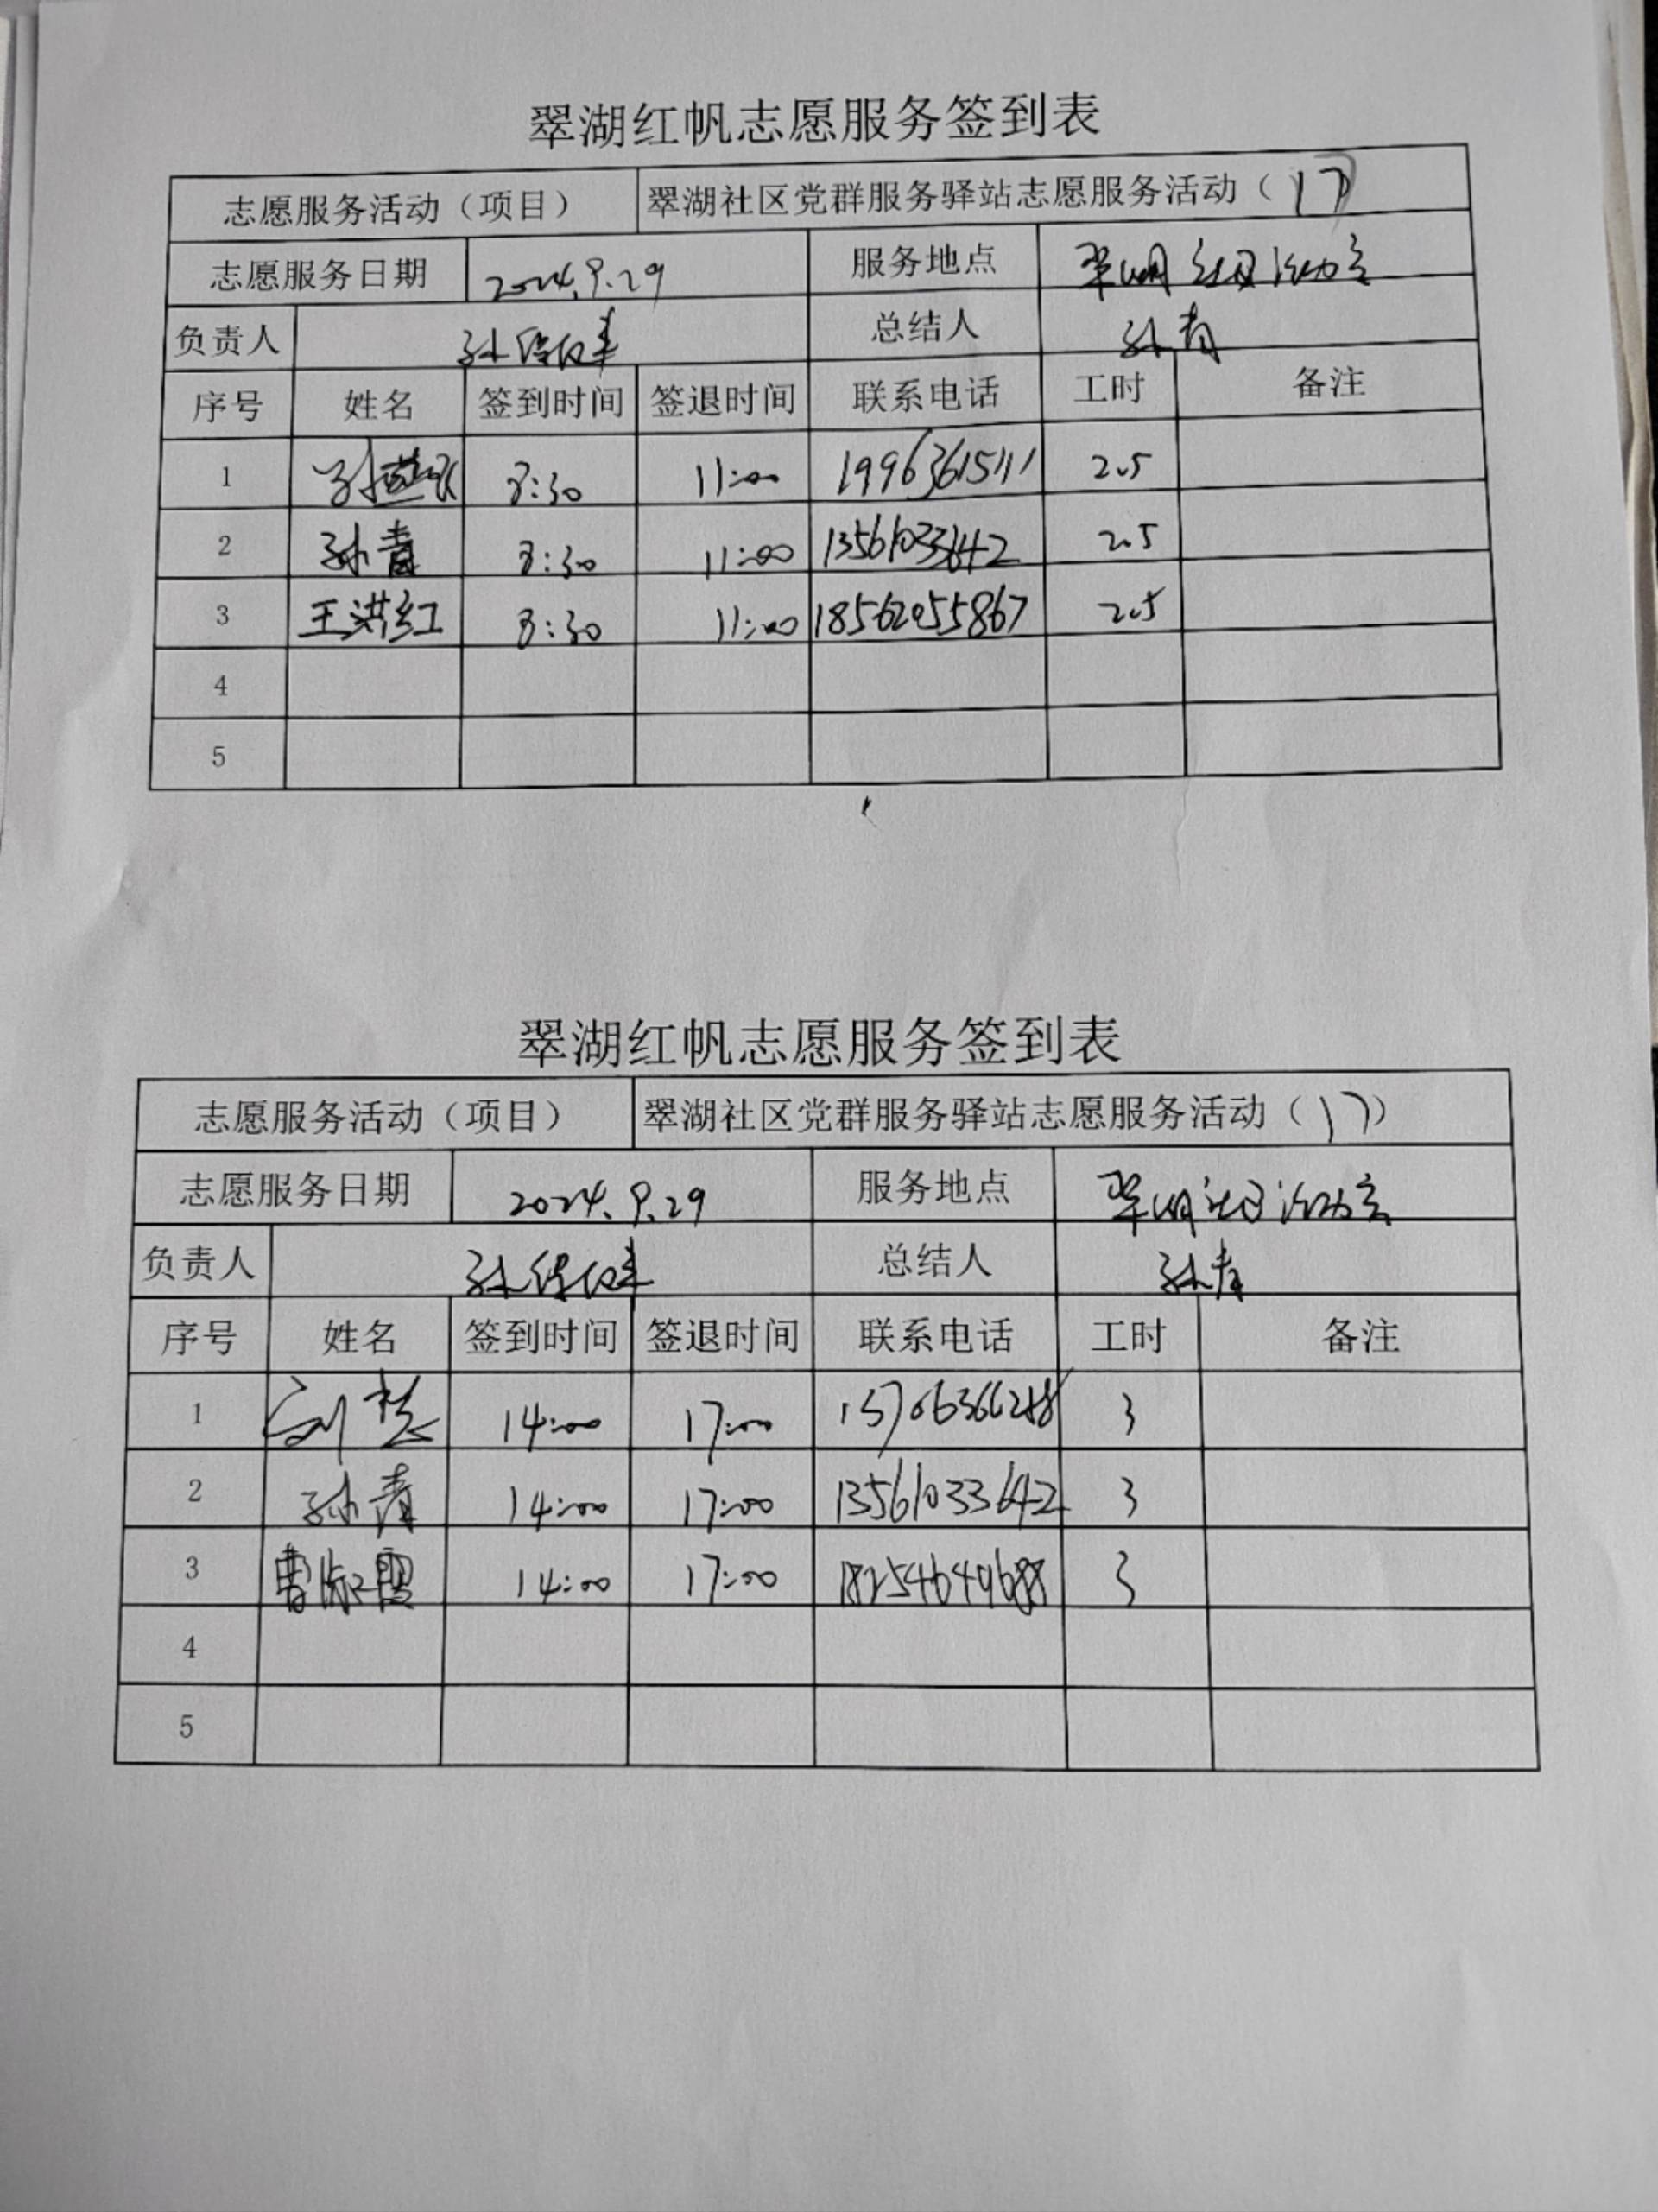 翠湖红帆志愿服务签到表
志愿服务活动（项目） 翠湖社区党群服务驿站志愿服务活动（17）
志愿服务日期 2024.9.29 服务地点 翠湖社区活动室
负责人 孙 总结人 孙青
序号 姓名 签到时间 签退时间 联系电话 工时 备注
1 孙 8:30 11:00 19963615111 2.5
2 孙青 8:30 11:00 13561033642 2.5
3 王洪红 8:30 11:00 18562055867 2.5
4
5
翠湖红帆志愿服务签到表
志愿服务活动（项目） 翠湖社区党群服务驿站志愿服务活动（17）
志愿服务日期 2024.9.29 服务地点 翠湖社区活动室
负责人 孙 总结人 孙青
序号 姓名 签到时间 签退时间 联系电话 工时 备注
1 刘 14:00 17:00 3
2 孙青 14:00 17:00 13561033642 3
3 曹 14:00 17:00 18254649688 3
4
5